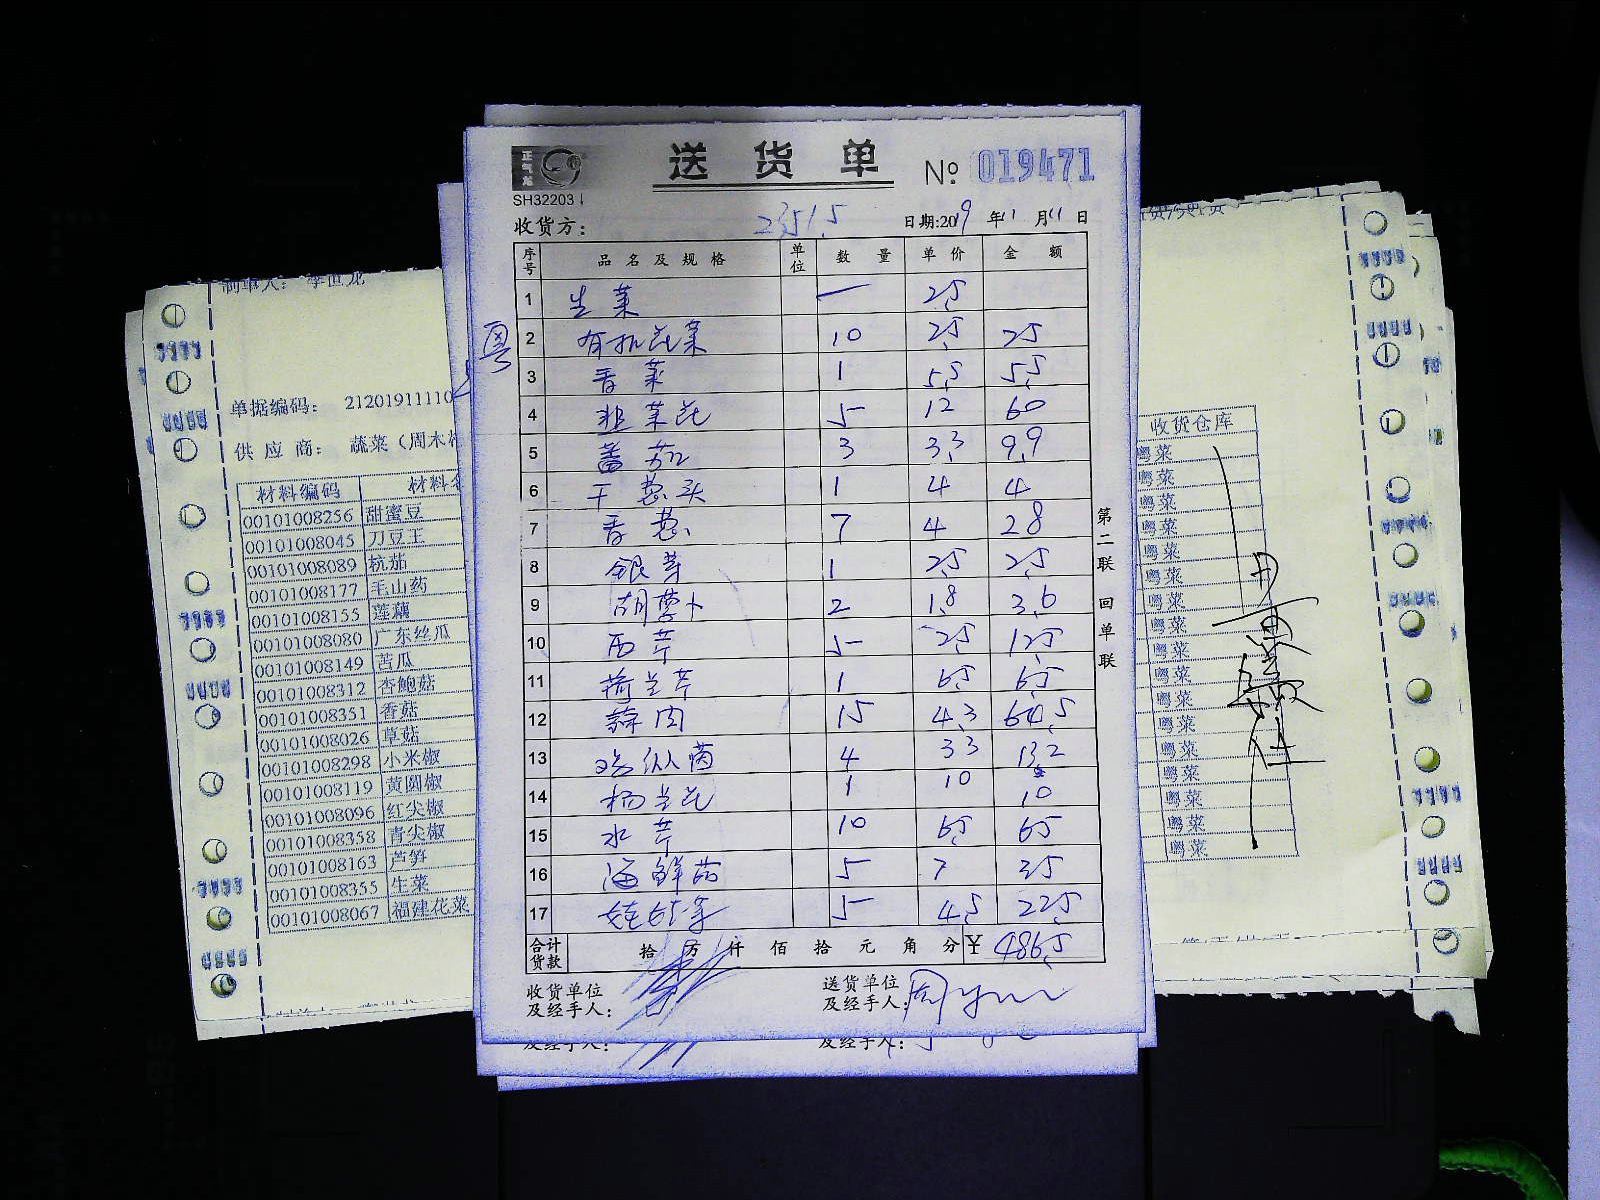 正气龙
送货单 № 019471
SH32203
收货方: 2351.5 日期:2019年11月11日
序号 品名及规格 单位 数量 单价 金额
1 生菜 一 2.5
2 有机花菜 10 2.5 25
3 香菜 1 5.5 5.5
4 韭菜花 5 12 60
5 蕃茄 3 3.3 9.9
6 干葱头 1 4 4
7 香葱 7 4 28
8 银芽 1 2.5 2.5
9 胡萝卜 2 1.8 3.6
10 西芹 5 2.5 12.5
11 荷兰芹 1 6.5 6.5
12 蒜肉 15 4.3 64.5
13 鸡纵菌 4 33 132
14 杨兰花 1 10 10
15 水芹 10 6.5 65
16 海鲜菇 5 7 35
17 娃娃菜 5 4.5 22.5
合计货款 拾万仟佰拾元角分 ¥ 486.5
收货单位及经手人:
送货单位及经手人: 周
第二联 回单联
粤
及经手人: 及经手人:
制单人: 李世龙
单据编码: 21201911110
供应商: 蔬菜(周木
材料编码 材料名
00101008256 甜蜜豆
00101008045 刀豆王
00101008089 杭茄
00101008177 毛山药
00101008155 莲藕
00101008080 广东丝瓜
00101008149 苦瓜
00101008312 杏鲍菇
00101008351 香菇
00101008026 草菇
00101008298 小米椒
00101008119 黄圆椒
00101008096 红尖椒
00101008358 青尖椒
00101008163 芦笋
00101008355 生菜
00101008067 福建花菜
收货仓库
粤菜
粤菜
粤菜
粤菜
粤菜
粤菜
粤菜
粤菜
粤菜
粤菜
粤菜
粤菜
粤菜
粤菜
粤菜
粤菜
粤菜